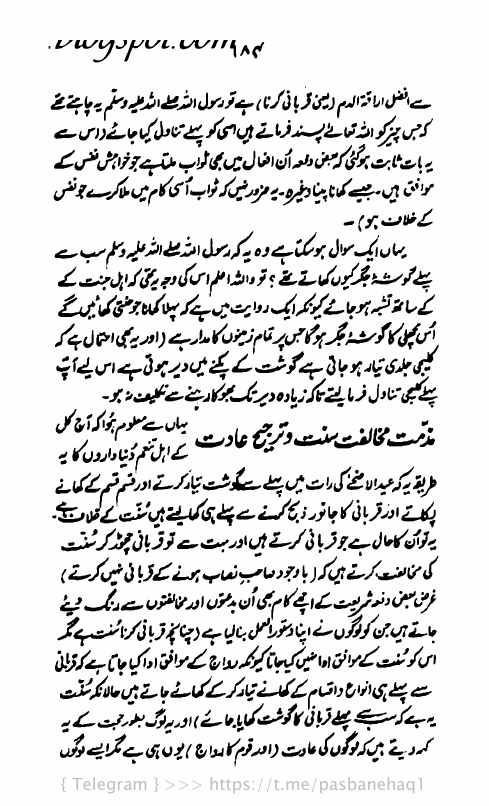 .blogspot.com ۶۸۴
سے افضل اراقۃ الدم (یعنی قربانی کرنا) ہے تو رسول اللہ صلے اللہ علیہ وسلم یہ چاہتے تھے
کہ جس چیز کو اللہ تعالےٰ پسند فرماتے ہیں اسی کو پہلے تناول کیا جائے (اس سے
یہ بات ثابت ہو گئی کہ بعض دفعہ اُن افعال میں بھی ثواب ملتا ہے جو خواہش نفس کے
موافق ہیں۔ جیسے کھانا پینا وغیرہ۔ یہ ضرور نہیں کہ ثواب اُسی کام میں ملا کرے جو نفس
کے خلاف ہو)۔
یہاں ایک سوال ہو سکتا ہے وہ یہ کہ رسول اللہ صلے اللہ علیہ وسلم سب سے
پہلے گوشۂ جگر کیوں کھاتے تھے؟ تو واللہ اعلم اس کی وجہ یہ تھی کہ اہل جنت کے
کے ساتھ تشبہ ہو جائے کیونکہ ایک روایت میں ہے کہ پہلا کھانا جو جنتی کھائیں گے
اُس مچھلی کا گوشۂ جگر ہو گا جس پر تمام زمینوں کا مدار ہے (اور یہ بھی احتمال ہے کہ
کلیجی جلدی تیار ہو جاتی ہے گوشت کے پکنے میں دیر ہوتی ہے اس لیے آپ
پہلے کلیجی تناول فرما لیتے تاکہ زیادہ دیر تک بھوکا رہنے سے تکلیف نہ ہو۔
مذمت مخالفت سنت و ترجیح عادت یہاں سے معلوم ہُوا کہ آج کل
کے اہل تنعم دُنیا داروں کا یہ
طریقہ یہ کہ عید الاضحےٰ کی رات میں پہلے سے گوشت تیار کرتے اور قسم قسم کے کھانے
پکاتے اور قربانی کا جانور ذبح کرنے سے پہلے ہی کھا لیتے ہیں سُنّت کے خلاف ہے۔
یہ تو اُن کا حال ہے جو قربانی کرتے ہیں اور بہت سے تو قربانی چھوڑ کر سُنّت
کی مخالفت کرتے ہیں کہ (باوجود صاحبِ نصاب ہونے کے قربانی نہیں کرتے)
غرض بعض دفعہ شریعت کے اچھے کام بھی اُن بدعتوں اور مخالفتوں سے رنگ دیئے
جاتے ہیں جن کو لوگوں نے اپنا دستور العمل بنا لیا ہے (چنانچہ قربانی کرنا سُنت ہے مگر
اس کو سُنت کے موافق ادا نہیں کیا جاتا کیونکہ رواج کے موافق ادا کیا جاتا ہے کہ قربانی
سے پہلے ہی انواع و اقسام کے کھانے تیار کر کے کھائے جاتے ہیں حالانکہ سُنّت
یہ ہے کہ سب سے پہلے قربانی کا گوشت کھایا جائے) اور یہ لوگ بطور حجت کے یہ
کہہ دیتے ہیں کہ لوگوں کی عادت (اور قوم کا رواج) یوں ہی ہے مگر ایسے لوگوں
{ Telegram } >>> https://t.me/pasbanehaq1